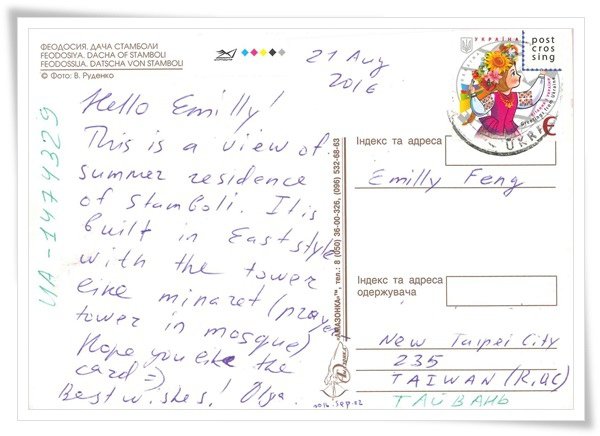 ФЕОДОСИЯ. ДАЧА СТАМБОЛИ
FEODOSIYA. DACHA OF STAMBOLI
FEODOSSIJA. DATSCHA VON STAMBOLI
© Фото: В. Руденко
21 Aug
2016
Hello Emilly!
This is a view of
summer residence
of Stamboli. It is
built in East style
with the tower
like minaret (prayer
tower in mosque)
Hope you like the
card =)
Best wishes! Olga.
UA-1474329
"МАЗОНКА"™, тел.: 8 (050) 36-00-326, (096) 532-68-63
УКРАЇНА
post
cros
sing
Greetings from Ukraine
UKR
€
Індекс та адреса
Emilly Feng
Індекс та адреса
одержувача
New Taipei City
235
TAIWAN (R.OC)
ТАЙВАНЬ
2016.Sep.02